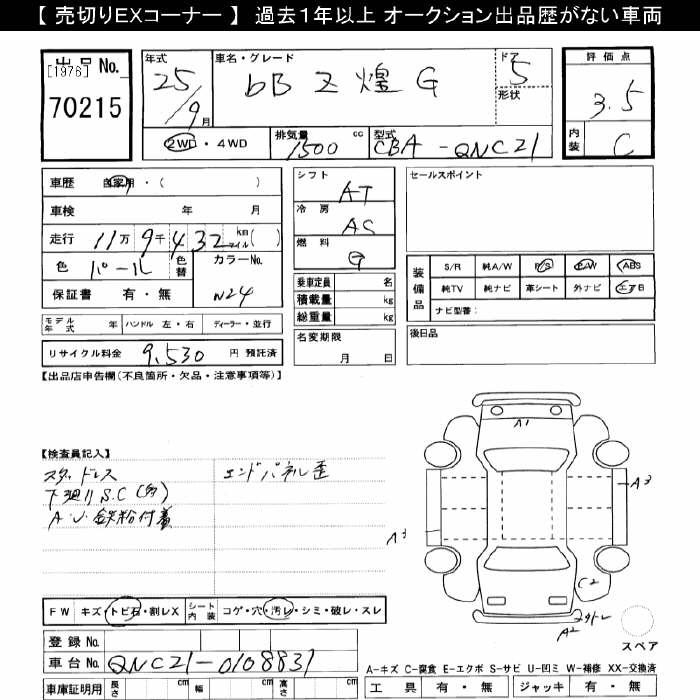 【 売切りEXコーナー 】 過去１年以上 オークション出品歴がない車両
出品 No.
[1976]
70215
年式 25/9月
車名・グレード bB Z 煌 G
ドア 5
形状
評価点 3.5
内装 C
2WD・4WD
排気量 1500 cc
型式 CBA-QNC21
車歴 自家用・( )
車検 年 月
走行 11万9千432 km マイル( )
色 パール 色替 カラーNo. W24
保証書 有・無
モデル年式 年 ハンドル 左・右 ディーラー・並行
リサイクル料金 9,530 円 預託済
シフト AT
冷房 AC
燃料 G
乗車定員 名
積載量 kg
総重量 kg
名変期限 月 日
セールスポイント
装備品 S/R 純A/W P/S P/W ABS
純TV 純ナビ 革シート 外ナビ エアB
ナビ型番:
後日品
【出品店申告欄(不良箇所・欠品・注意事項等)】
【検査員記入】
スタッドレス エンドパネル歪
下廻りS.C(多)
鉄粉付着
A1
A3
A3
C2
A2
スペア
FW キズ・トビ石・割レX シート内装 コゲ・穴・汚レ・シミ・破レ・スレ
登録 No.
車台 No. QNC21-0108831
車庫証明用 長さ cm 幅 cm 高さ cm
A-キズ C-腐食 E-エクボ S-サビ U-凹ミ W-補修 XX-交換済
工具 有・無 ジャッキ 有・無